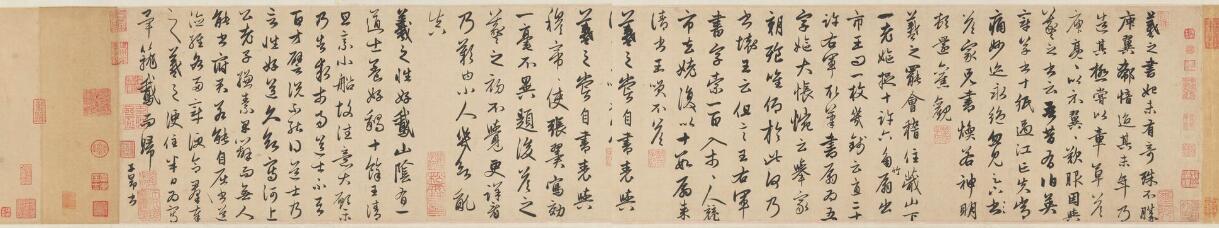 羲之書初未有奇殊不勝
庾翼郗愔迨其末年乃
造其極嘗以章草答
庾亮亮以示翼翼歎服因與
羲之書云吾昔有伯英
章草書十紙過江亡失常
痛妙迹永絕忽見足下書
答家兄書煥若神明
頓還舊觀
羲之罷會稽住蕺山下
一老嫗捉十許六角竹扇出
市王曰一枚幾錢云直二十
許右軍取筆書扇扇為五
字嫗大悵惋云舉家
朝飡唯仰於此何乃
書壞王云但言王右軍
書字索一百入市人競
市去姥復以十數扇來
請書王笑不答
羲之嘗自書表與
羲之嘗自書表與
穆帝帝使張翼寫効
一毫不異題後答之
羲之初不覺更詳看
乃歎曰小人幾欲亂
真
羲之性好鵝山陰有一
道士養好鵝十餘王清
旦乘小船故往意大願樂
乃告求市易道士不與
百方譬說不能得道士乃
言性好道久欲寫河上
公老子縑素早辦而無人
能書府君若能自屈書道
德經各兩章便合羣奉
之羲之便住半日為寫
畢籠鵝而歸
子昂書